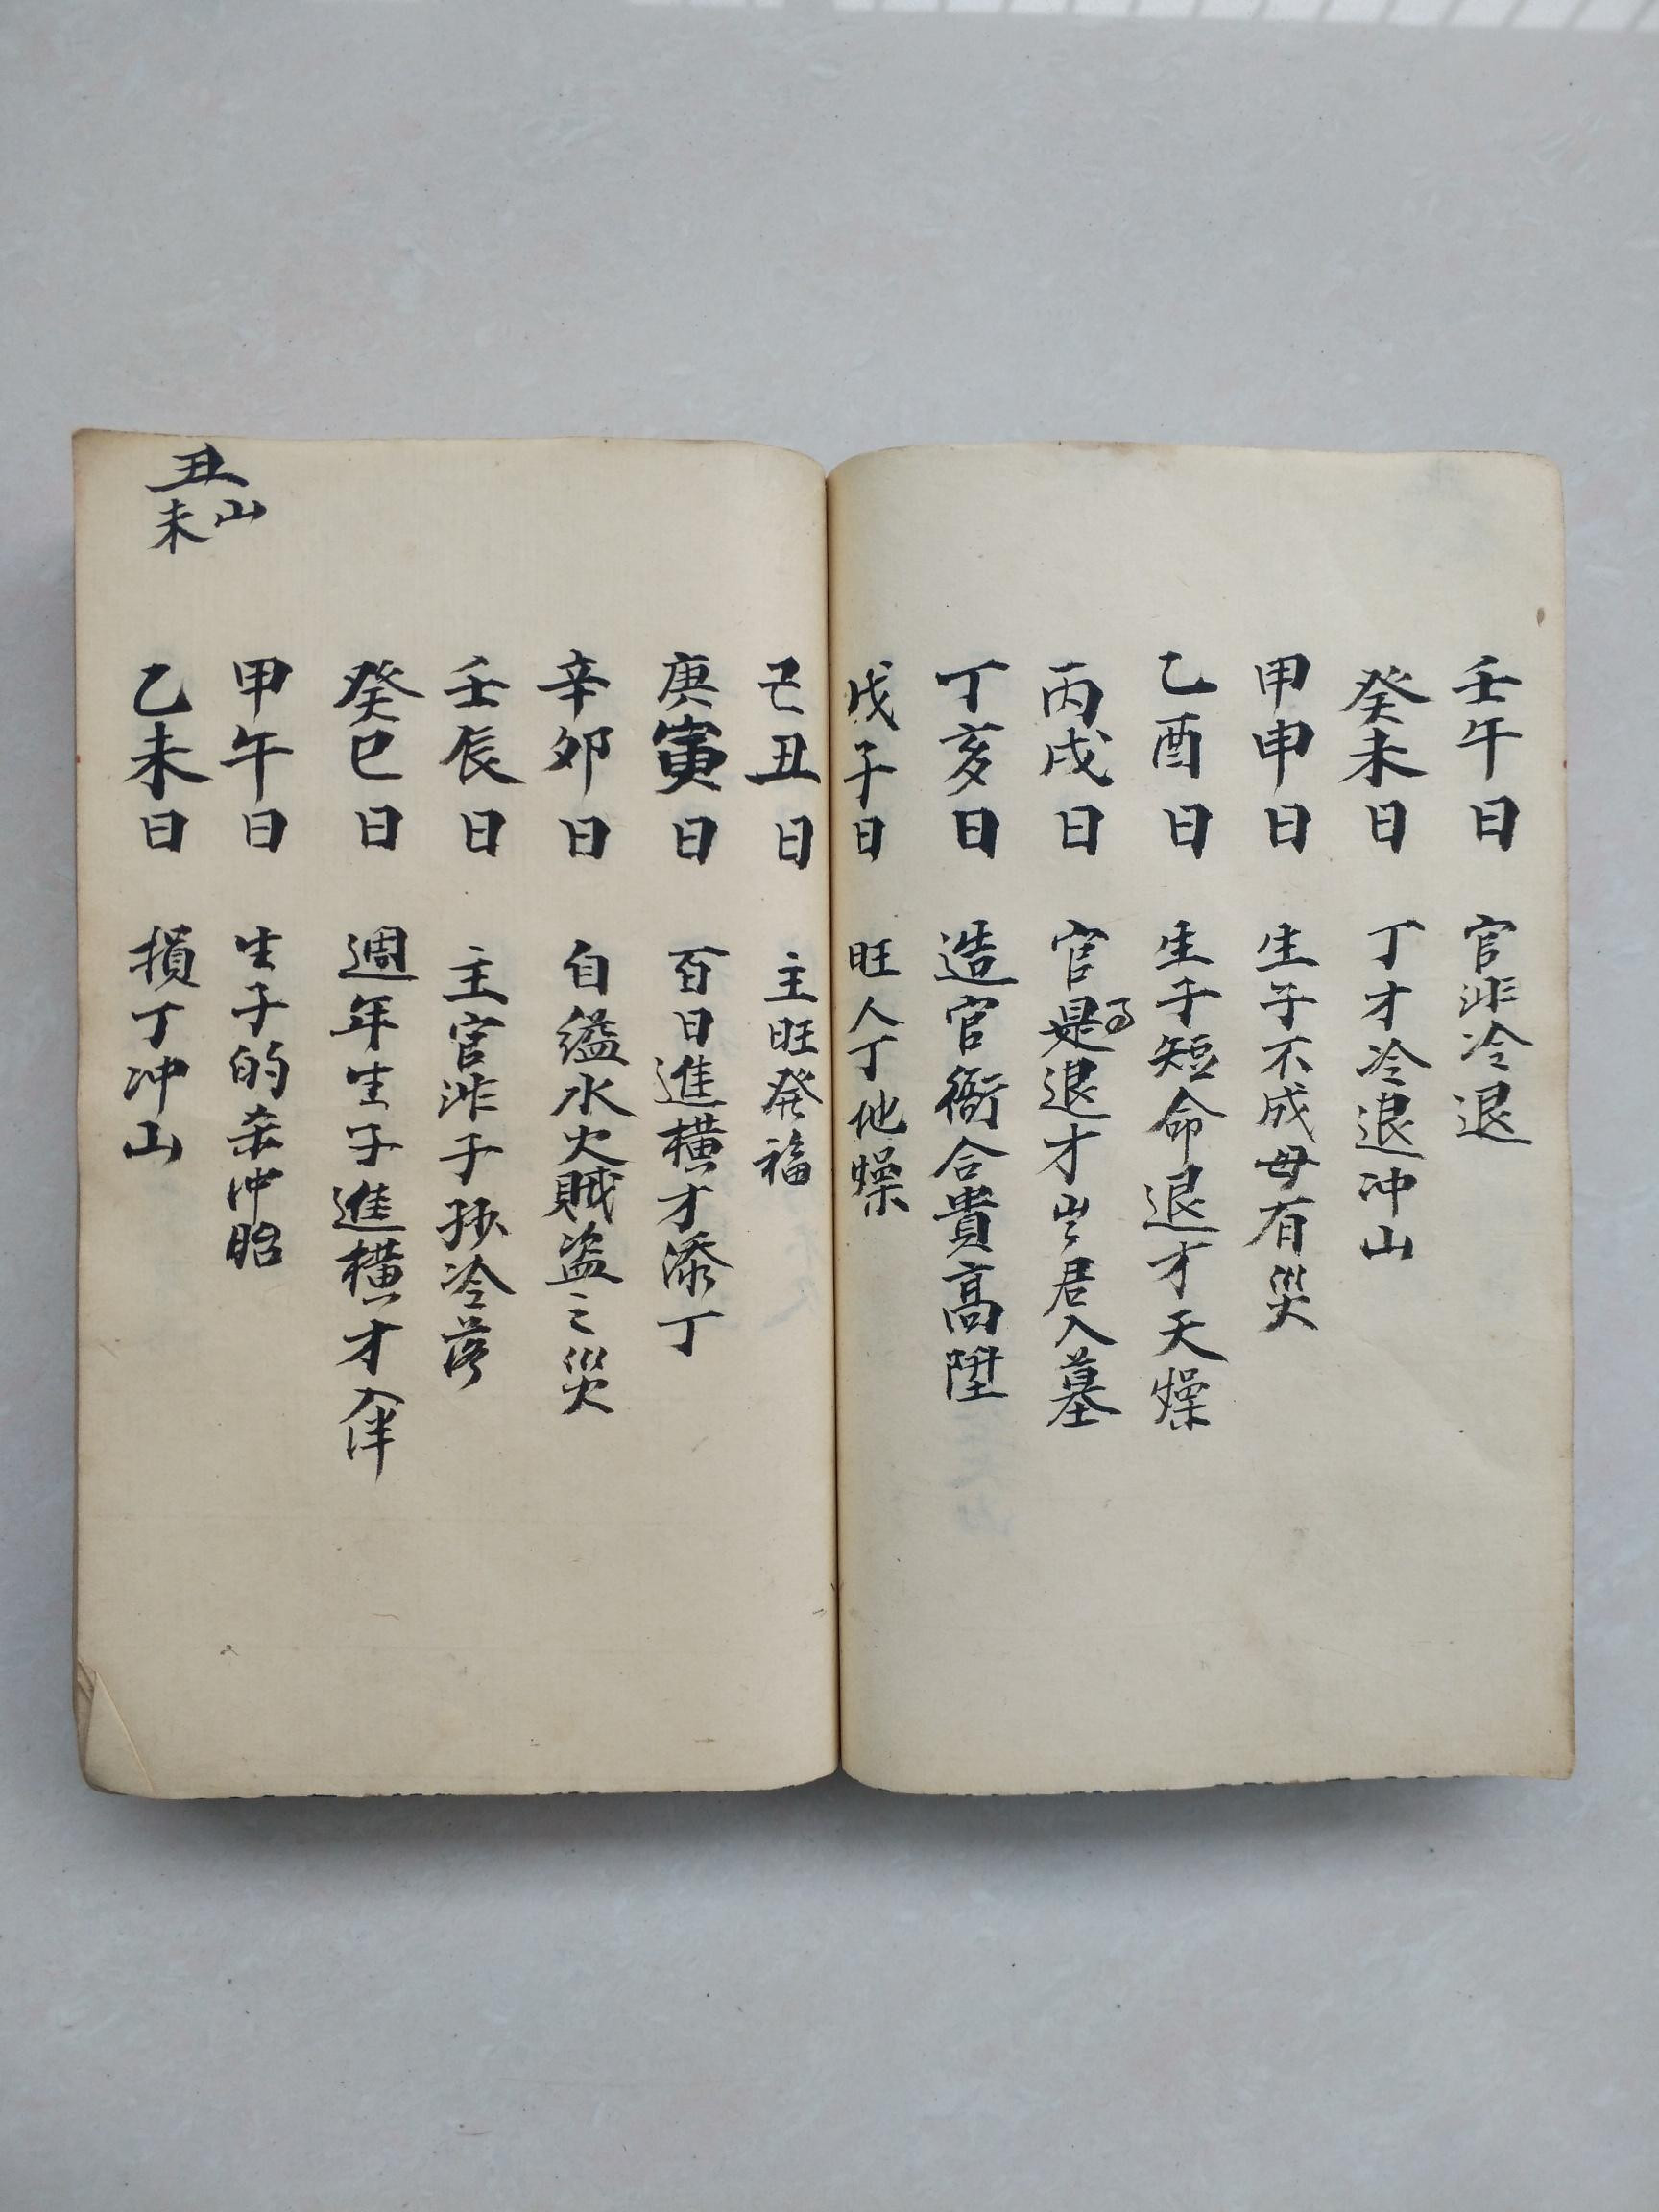 壬午日　官非冷退
癸未日　丁才冷退冲山
甲申日　生子不成毋有災
乙酉日　生子短命退才天燥
丙戌日　官是退才山君入墓
丁亥日　造官衙合貴高陞
戊子日　旺人丁地燥
己丑日　主旺發福
庚寅日　百日進横才添丁
辛卯日　自縊水火賊盗之災
壬辰日　主官非子孫冷落
癸巳日　週年生子進横才入
甲午日　生子的杀冲昭
乙未日　損丁冲山
丑未山